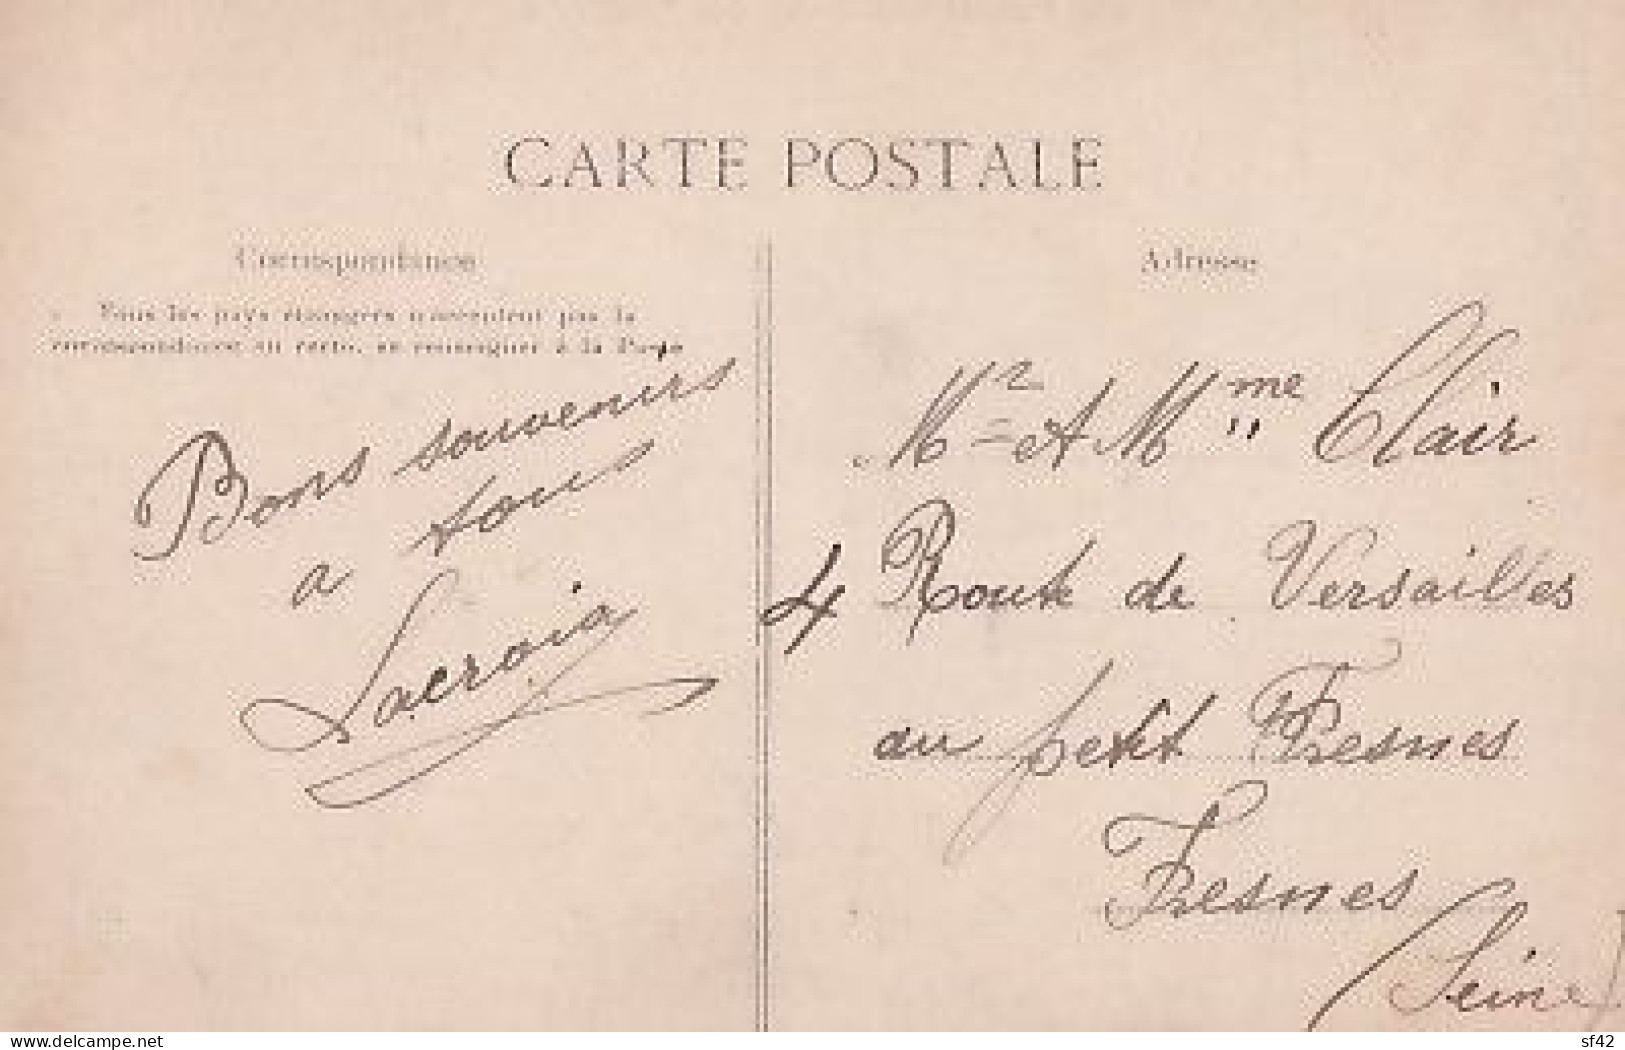 CARTE POSTALE
Correspondance
Tous les pays étrangers n'acceptent pas la
correspondance au recto, se renseigner à la Poste
Bons souvenirs
a tous
Lacroix
Adresse
Mr et Mme Clair
4 Route de Versailles
au petit Fresnes
Fresnes
(Seine)
delcampe.net
sf42